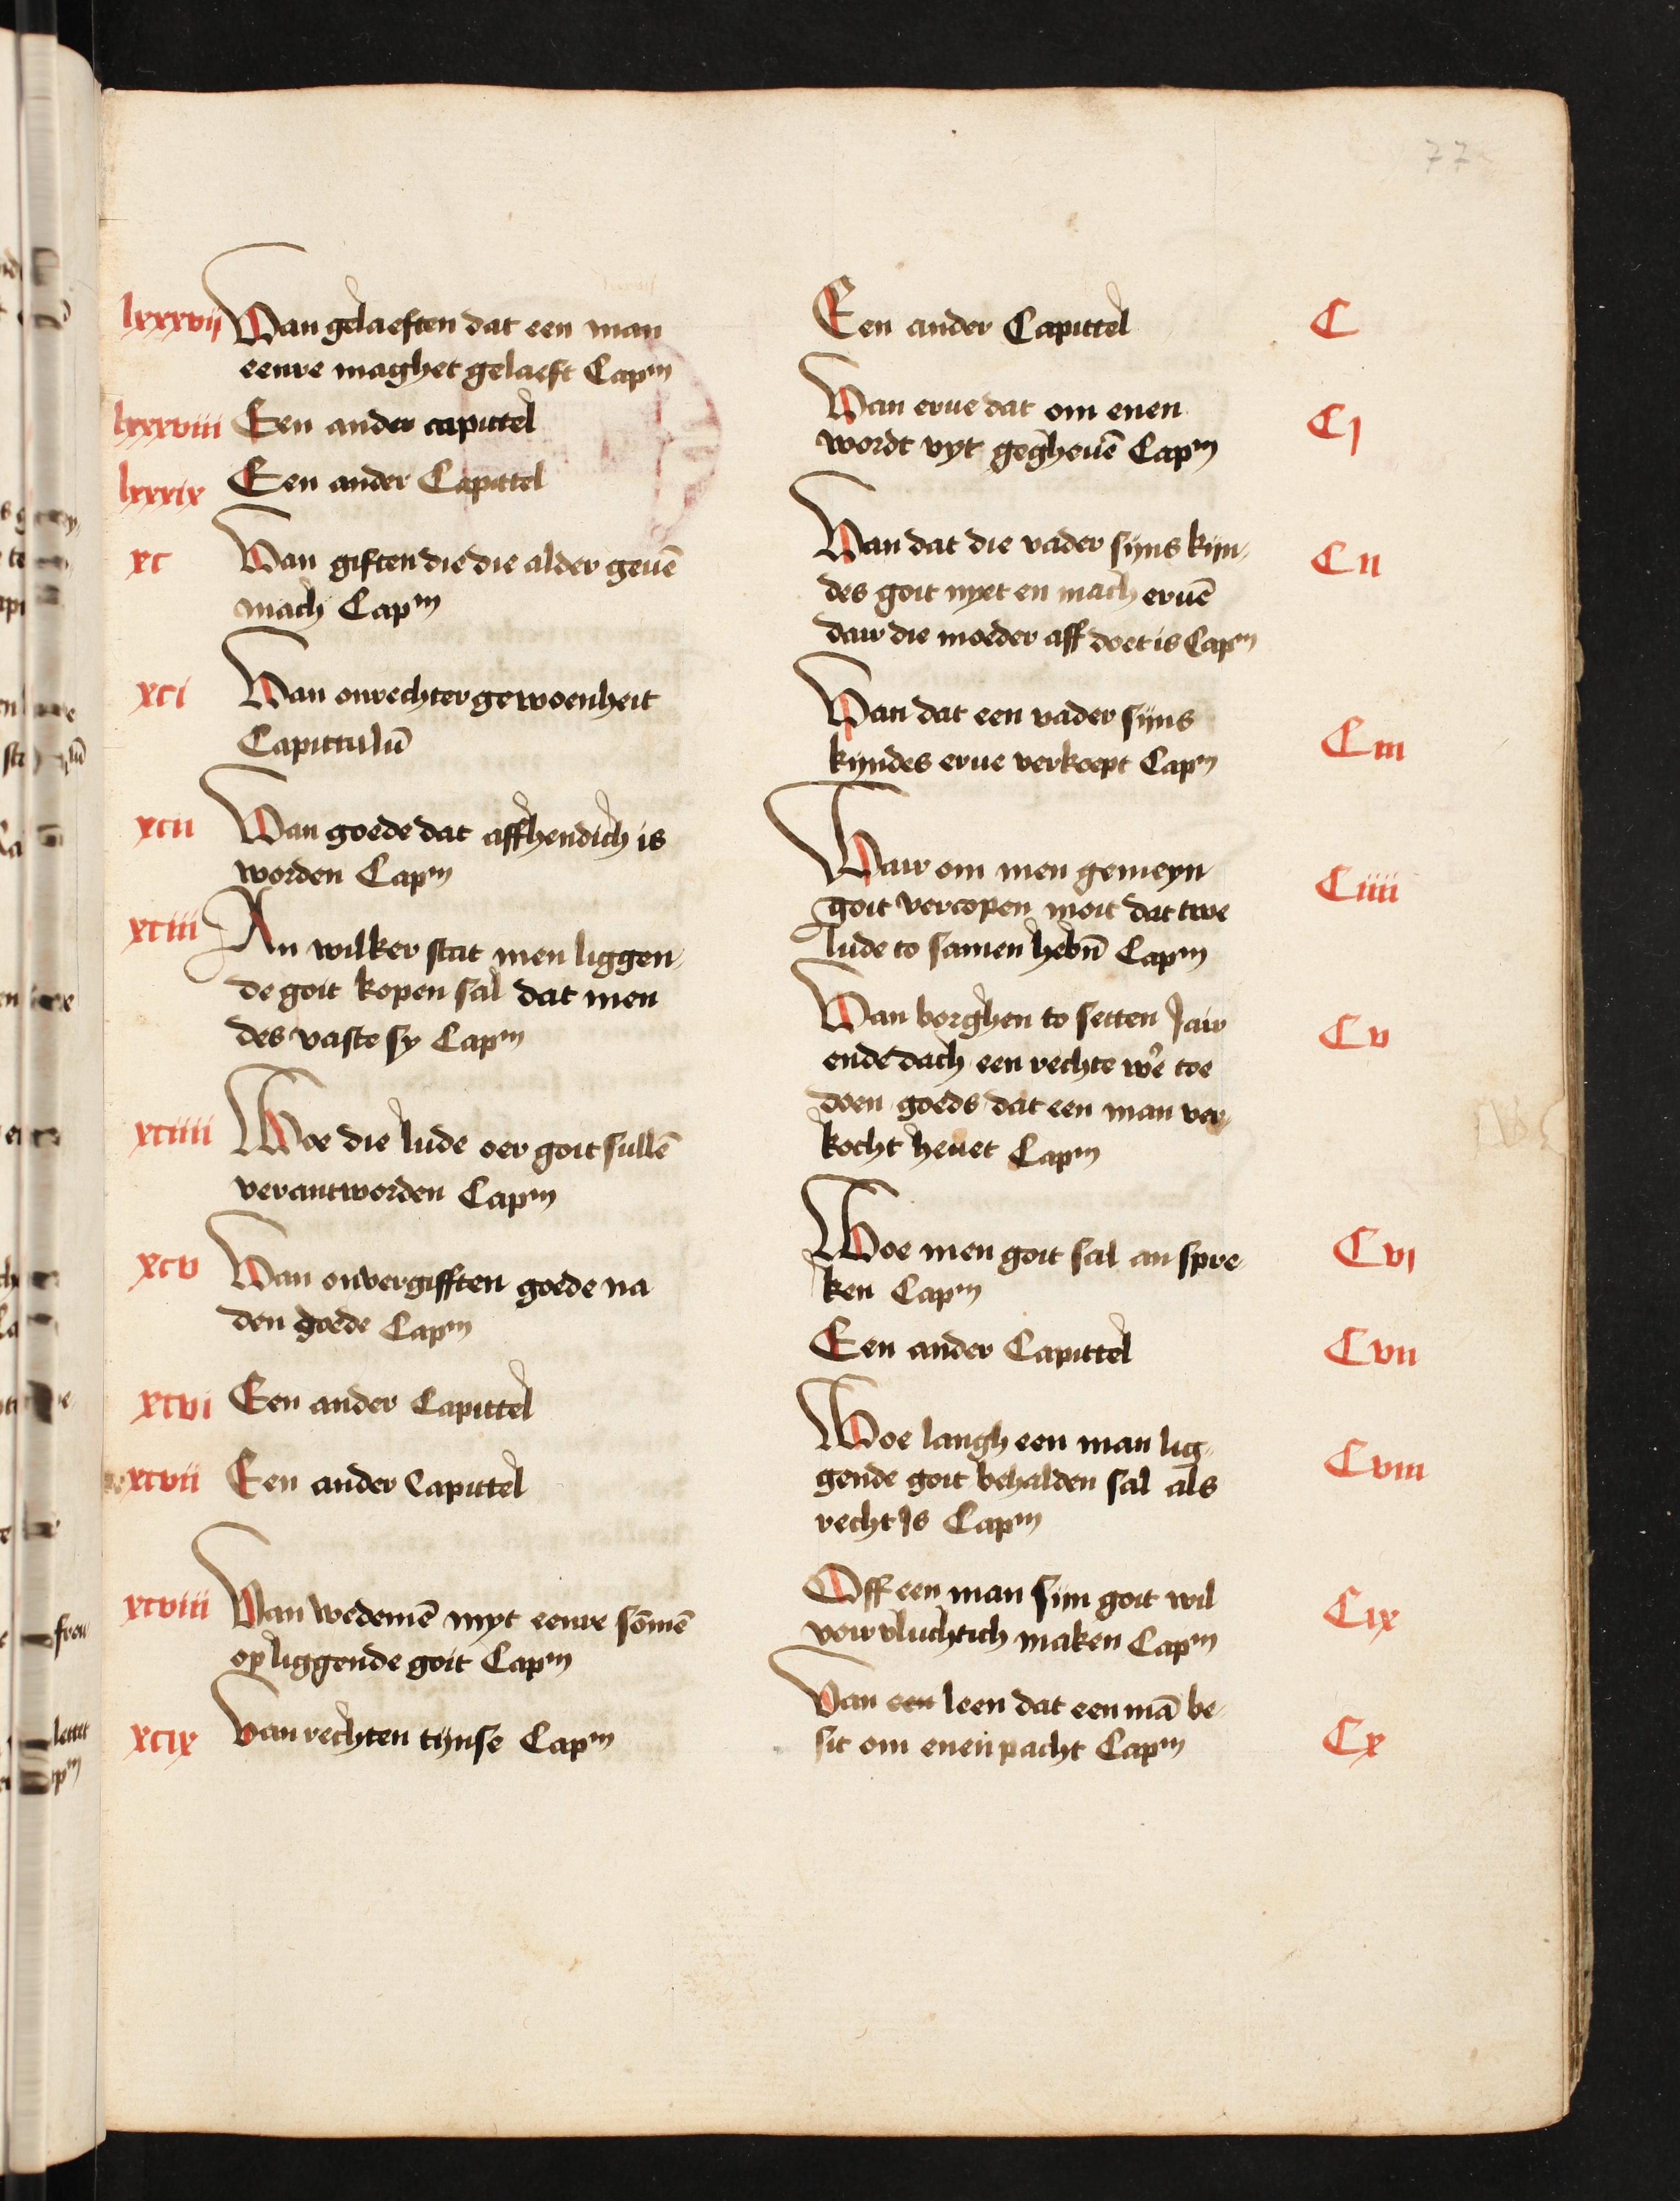 77
lxxxvij Van gelaeften dat een man
eenre maghet gelaeft Capm
lxxxviii Een ander capittel
lxxxix Een ander Capittel
xc Van giften die die alder geuē
mach Capm
xci Van onrechter gewoenheit
Capittulū
xcii Van goede dat affhendich is
worden Capm
xciii An wilker stat men liggen
de goit kopen sal dat men
des vaste sy Capm
xciiii Woe die lude oer goit sullē
verantworden Capm
xcv Van onvergifften goede na
den goede Capm
xcvi Een ander Capittel
xcvii Een ander Capittel
xcviii Van wedemē myt eenre sōmē
op liggende goit Capm
xcix Van rechten tijnse Capm
Een ander Capittel C
Van erue dat om enen
wordt vyt gegheuē Capm Cj
Van dat die vader sijns kijn
des goit nyet en mach eruē
dair die moeder aff doet is Capm Cii
Van dat een vader sijns
kijndes erue verkoept Capm Ciii
Wair om men gemeyn
goit vercopen moit dat twe
lude to samen hebn̄ Capm Ciiii
Van borghen to setten Jair
ende dach een rechte we͛ toe
doen goeds dat een man ver
kocht heuet Capm Cv
Woe men goit sal an spre
ken Capm Cvi
Een ander Capittel Cvii
Woe langh een man lig
gende goit behalden sal als
recht Is Capm Cviii
Off een man sijn goit wil
voirvluchtich maken Capm Cix
Van een leen dat een mā be
sit om enen pacht Capm Cx